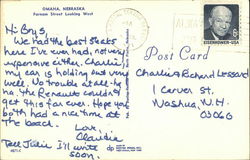 OMAHA, NEBRASKA
Farnam Street Looking West
Hi Boys,
We had the best steaks
here I've ever had, not very
expensive either. Charlie,
my car is holding out very
well. No trouble at all so
far. The Renault couldn't
get this far ever. Hope you
both had a nice time at
the beach.
Love,
Claudia
Tell Julie I'll write
soon.
EISENHOWER·USA
Post Card
Charlie & Richard Lessard
1 Carver St.
Nashua, N.H.
03060
dp